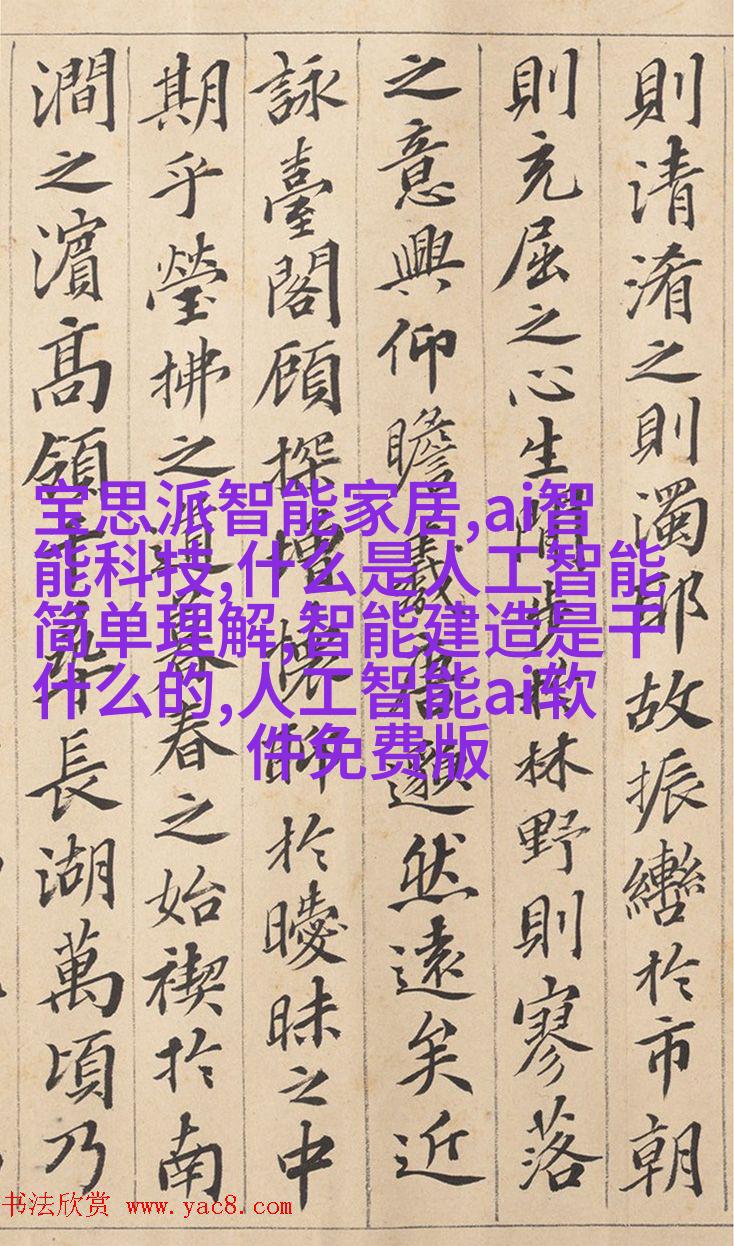 則清淆之則濁邪故振轡於市朝
則充屈之心生閒步於林野則寥落
之意興仰瞻羲唐邈然遠矣近
詠臺閣顧探增懷聊於曖昧之中
期乎瑩拂之道暮春之始禊於南
澗之濱高領千尋長湖萬頃乃
宝思派智能家居,ai智
能科技,什么是人工智能
简单理解,智能建造是干
什么的,人工智能ai软
件免费版
书法欣赏 www.yac8.com